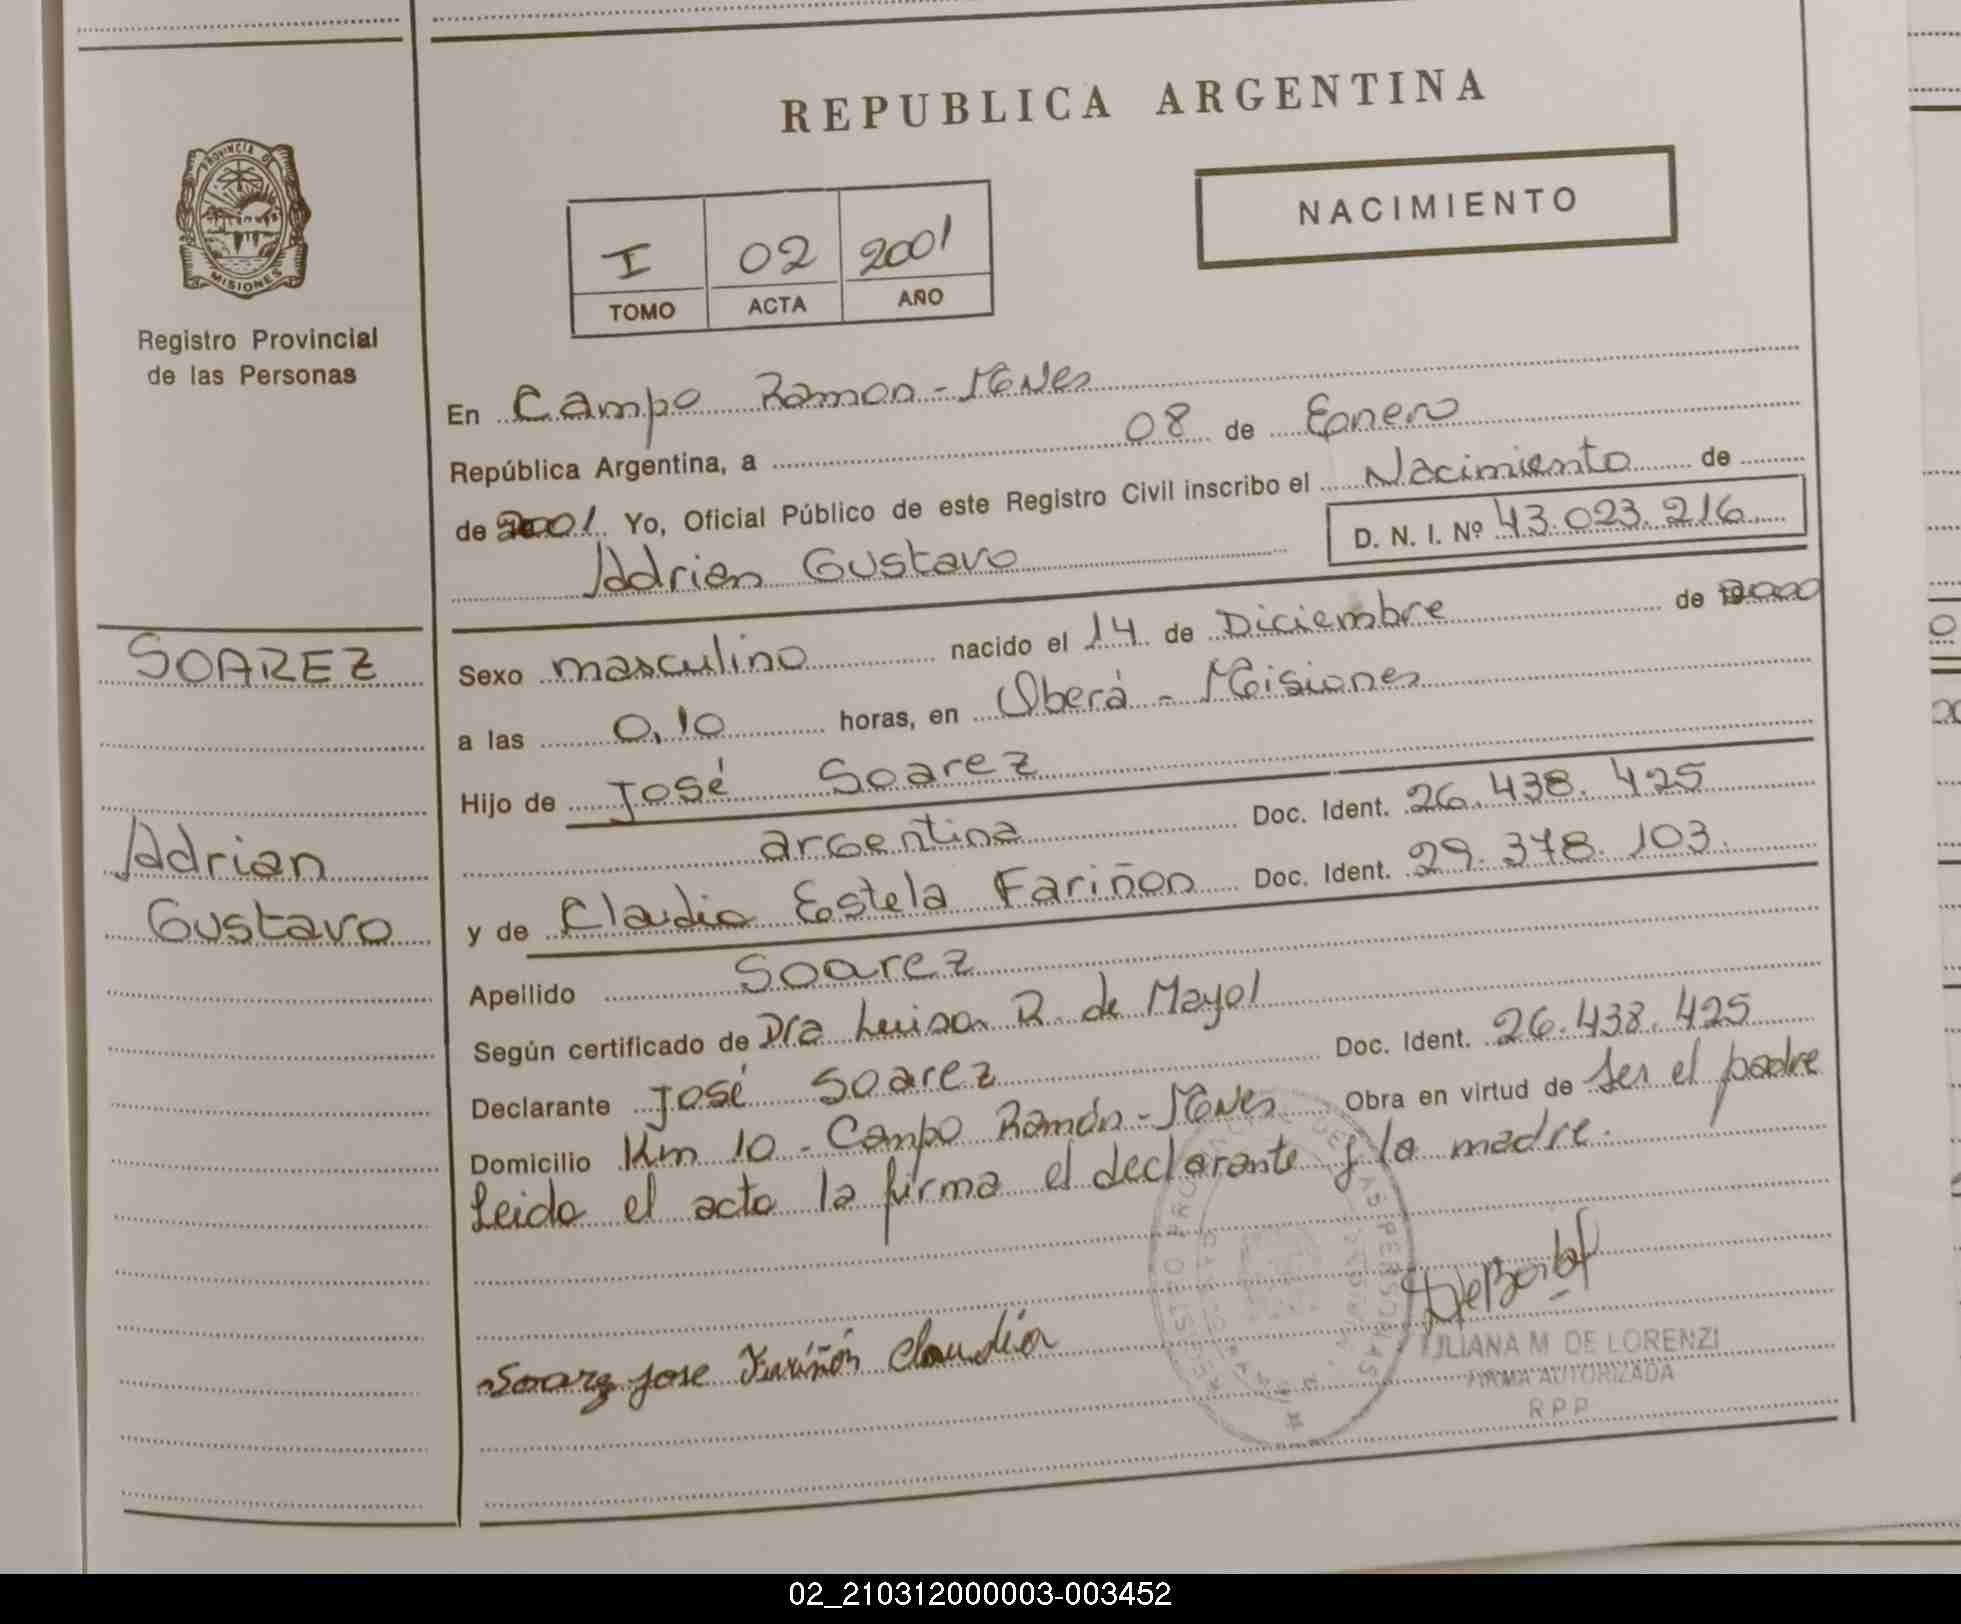 REPUBLICA ARGENTINA
NACIMIENTO
I 02 2001
TOMO ACTA AÑO
PROVINCIA DE MISIONES
Registro Provincial
de las Personas
En Campo Ramon - Mnes
República Argentina, a 08 de Enero
de 2001. Yo, Oficial Público de este Registro Civil inscribo el Nacimiento de
Adrian Gustavo D. N. I. Nº 43.023.216
SOAREZ
Adrian
Gustavo
Sexo masculino nacido el 14 de Diciembre de 2000
a las 0,10 horas, en Oberá - Misiones
Hijo de José Soarez
argentina Doc. Ident. 26.438.425
y de Claudia Estela Fariñon Doc. Ident. 29.378.103.
Apellido Soarez
Según certificado de Dra Luisa R. de Mayol
Declarante José Soarez Doc. Ident. 26.438.425
Domicilio Km 10 - Campo Ramón - Mnes Obra en virtud de ser el padre
Leida el acta la firma el declarante y la madre.
Soarez jose Fariñón Claudia
LILIANA M DE LORENZI
FIRMA AUTORIZADA
R P P
02_210312000003-003452